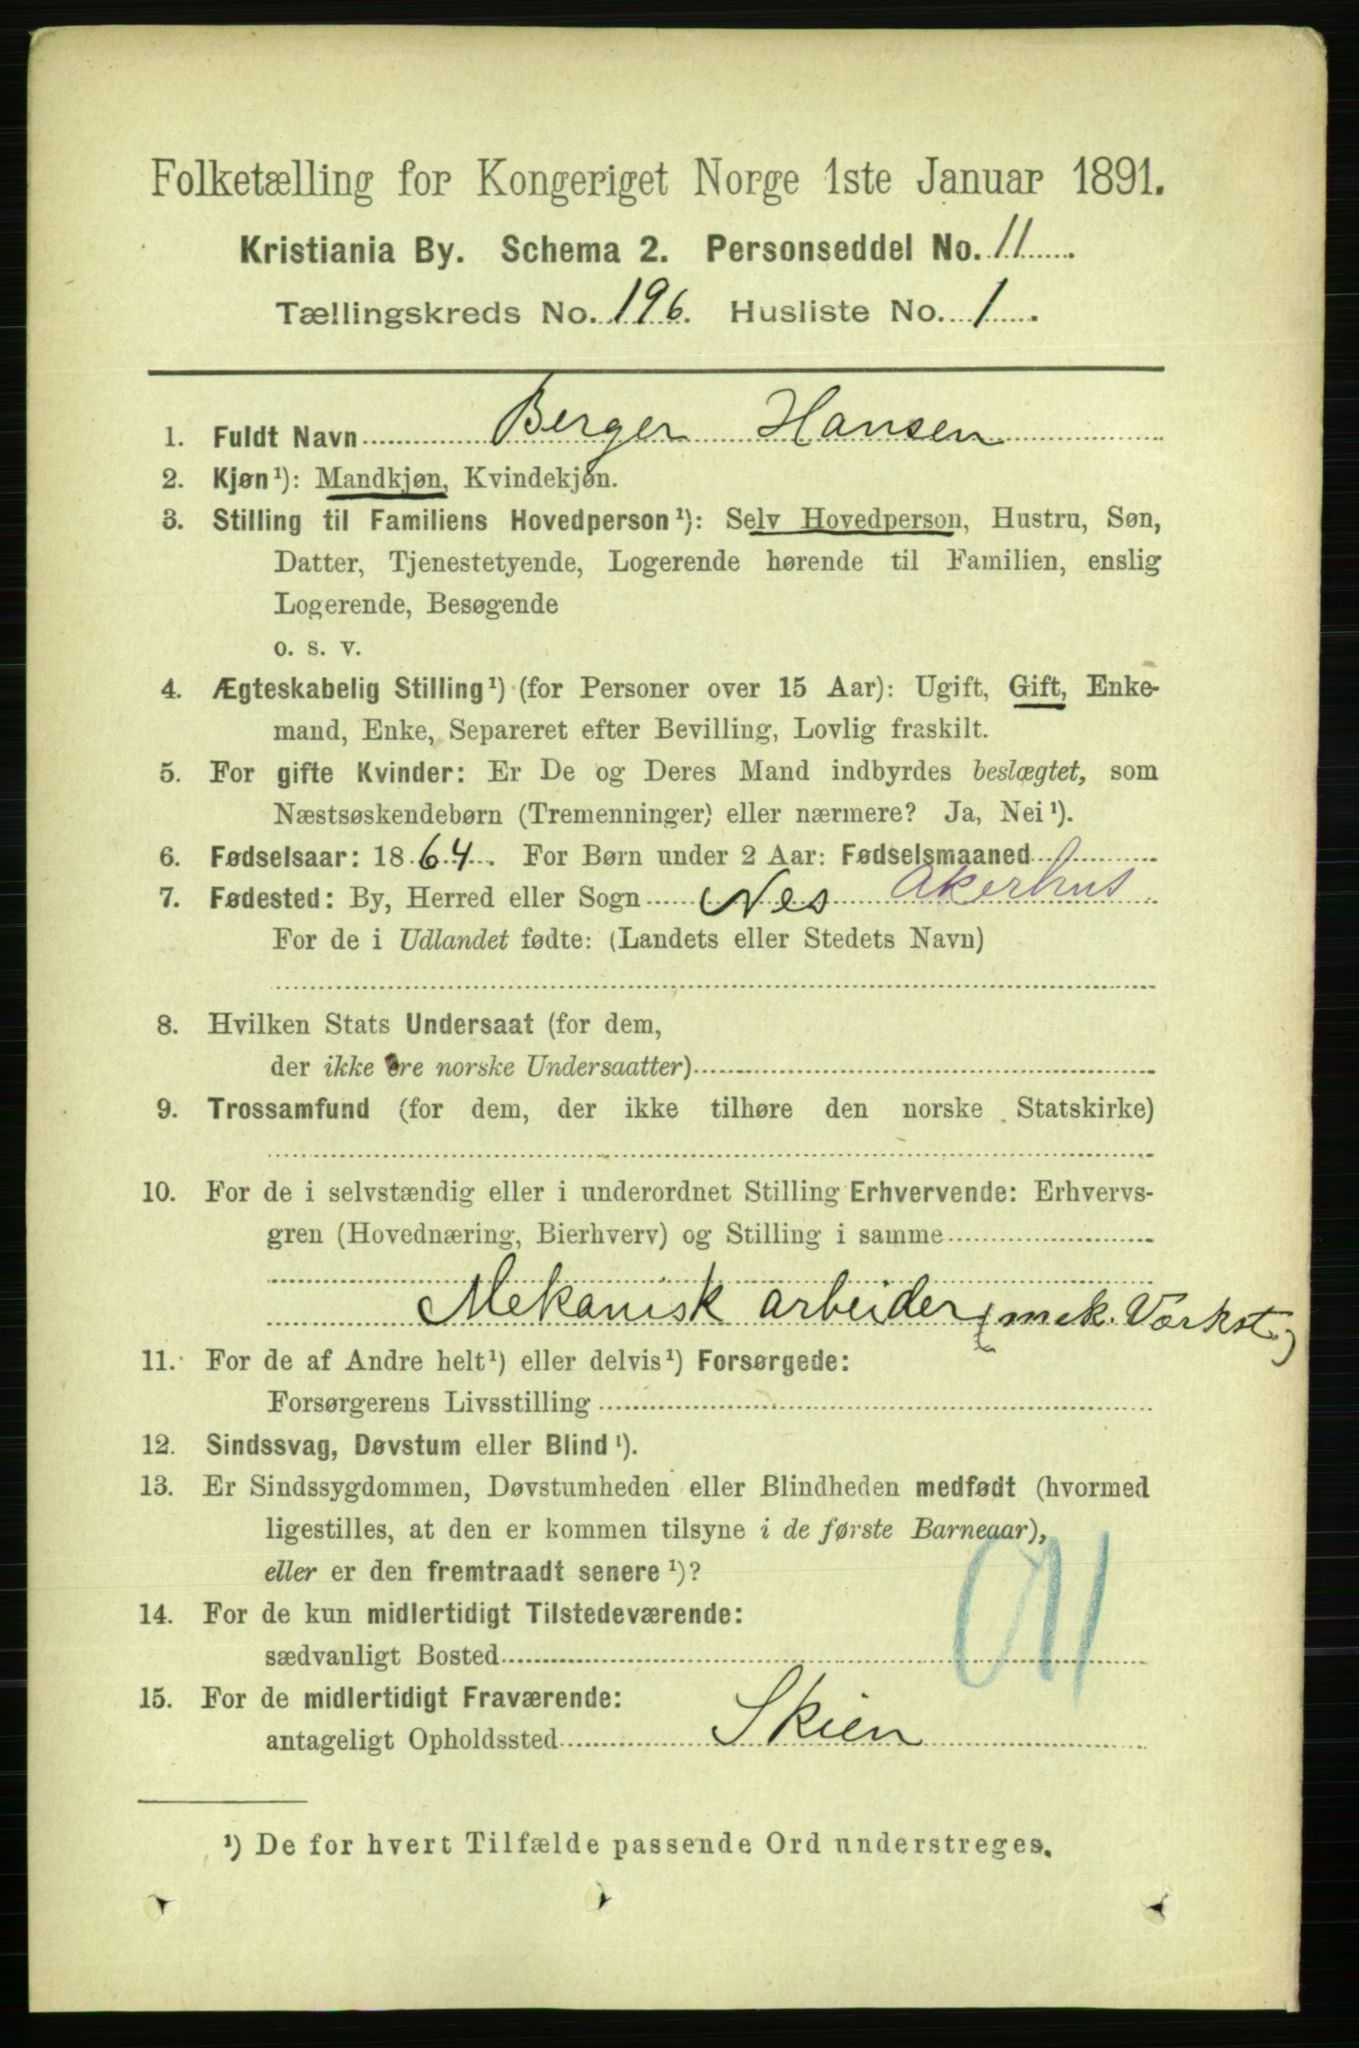 Folketælling for Kongeriget Norge 1ste Januar 1891.
Kristiania By. Schema 2. Personseddel No. 11
Tællingskreds No. 196. Husliste No. 1.
1. Fuldt Navn Berger Hansen
2. Kjøn¹): Mandkjøn, Kvindekjøn.
3. Stilling til Familiens Hovedperson¹): Selv Hovedperson, Hustru, Søn,
Datter, Tjenestetyende, Logerende hørende til Familien, enslig
Logerende, Besøgende
o. s. v.
4. Ægteskabelig Stilling¹) (for Personer over 15 Aar): Ugift, Gift, Enke-
mand, Enke, Separeret efter Bevilling, Lovlig fraskilt.
5. For gifte Kvinder: Er De og Deres Mand indbyrdes beslægtet, som
Næstsøskendebørn (Tremenninger) eller nærmere? Ja, Nei¹).
6. Fødselsaar: 1864. For Børn under 2 Aar: Fødselsmaaned
7. Fødested: By, Herred eller Sogn Nes Akerhus
For de i Udlandet fødte: (Landets eller Stedets Navn)
8. Hvilken Stats Undersaat (for dem,
der ikke ere norske Undersaatter)
9. Trossamfund (for dem, der ikke tilhøre den norske Statskirke)
10. For de i selvstændig eller i underordnet Stilling Erhvervende: Erhvervs-
gren (Hovednæring, Bierhverv) og Stilling i samme
Mekanisk arbeider (mek. Værkst.)
11. For de af Andre helt¹) eller delvis¹) Forsørgede:
Forsørgerens Livsstilling
12. Sindssvag, Døvstum eller Blind¹).
13. Er Sindssygdommen, Døvstumheden eller Blindheden medfødt (hvormed
ligestilles, at den er kommen tilsyne i de første Barneaar),
eller er den fremtraadt senere¹)?
14. For de kun midlertidigt Tilstedeværende:
sædvanligt Bosted
15. For de midlertidigt Fraværende:
antageligt Opholdssted Skien
¹) De for hvert Tilfælde passende Ord understreges.